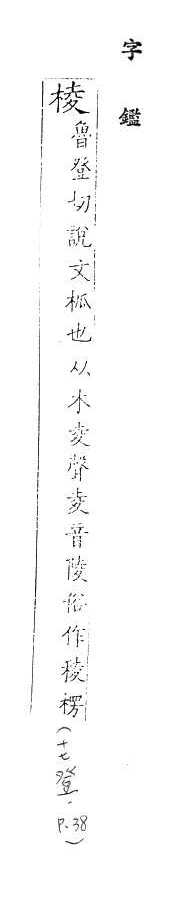 字鑑
棱魯登切說文柧也从木夌聲夌音陵俗作稜楞(十七登．P.38)